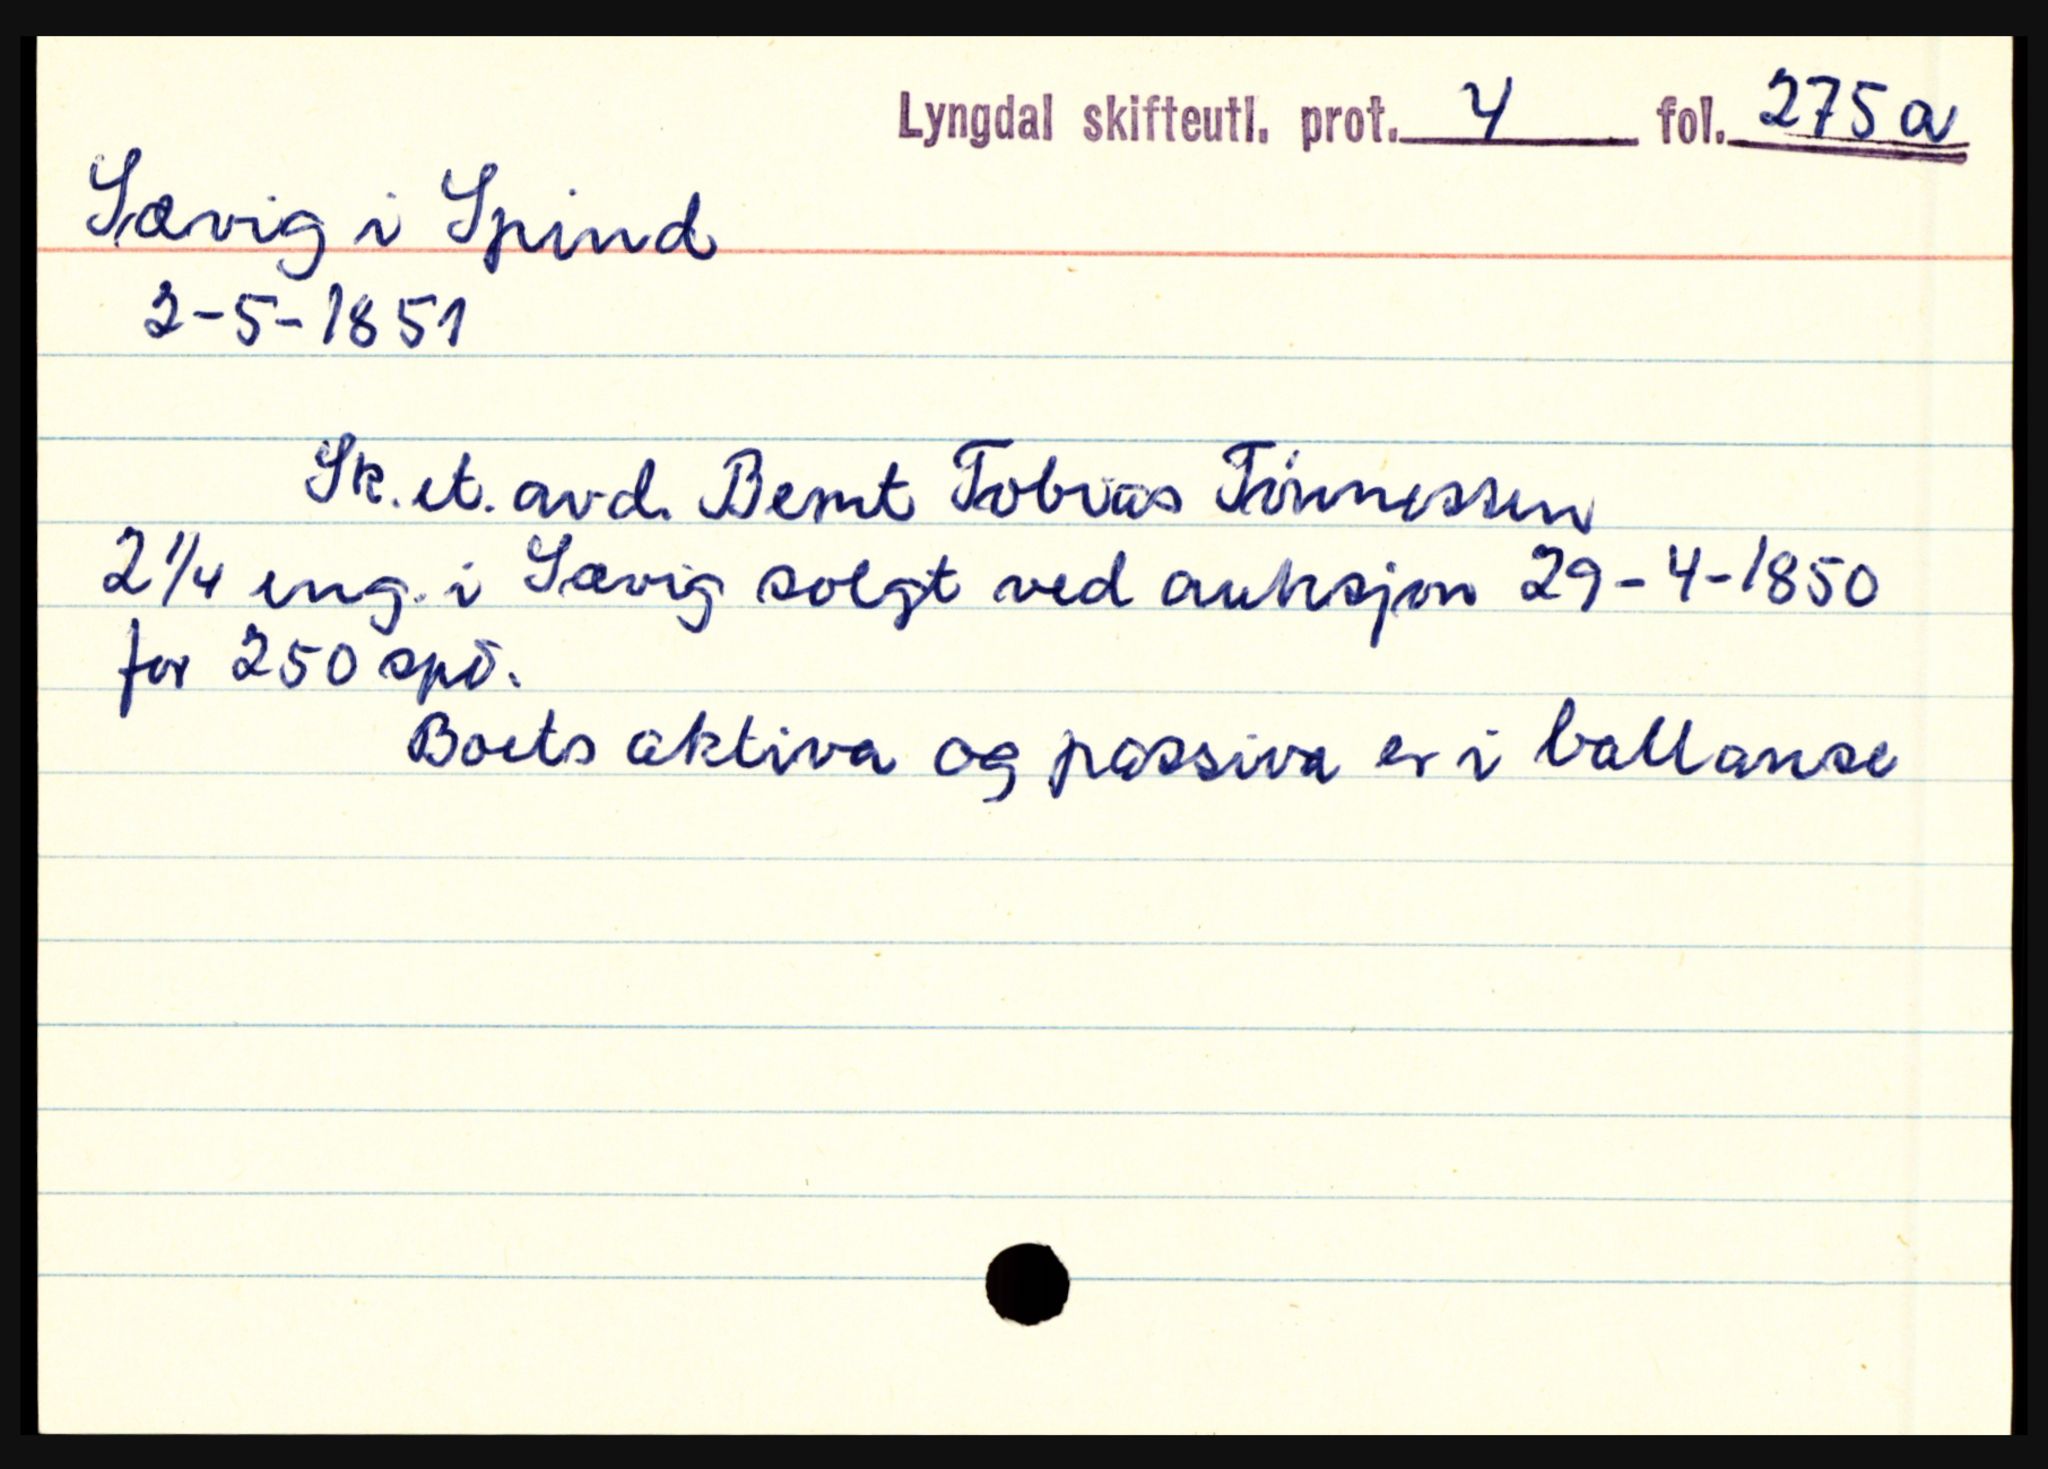 Lyngdal skifteutl. prot. 4 fol. 275a
Sævig i Spind
2-5-1851
Sk. et. avd. Bernt Tobias Tönnessen
2 1/4 eng. i Sævig solgt ved auksjon 29-4-1850
for 250 spd.
Boets aktiva og passiva er i ballanse